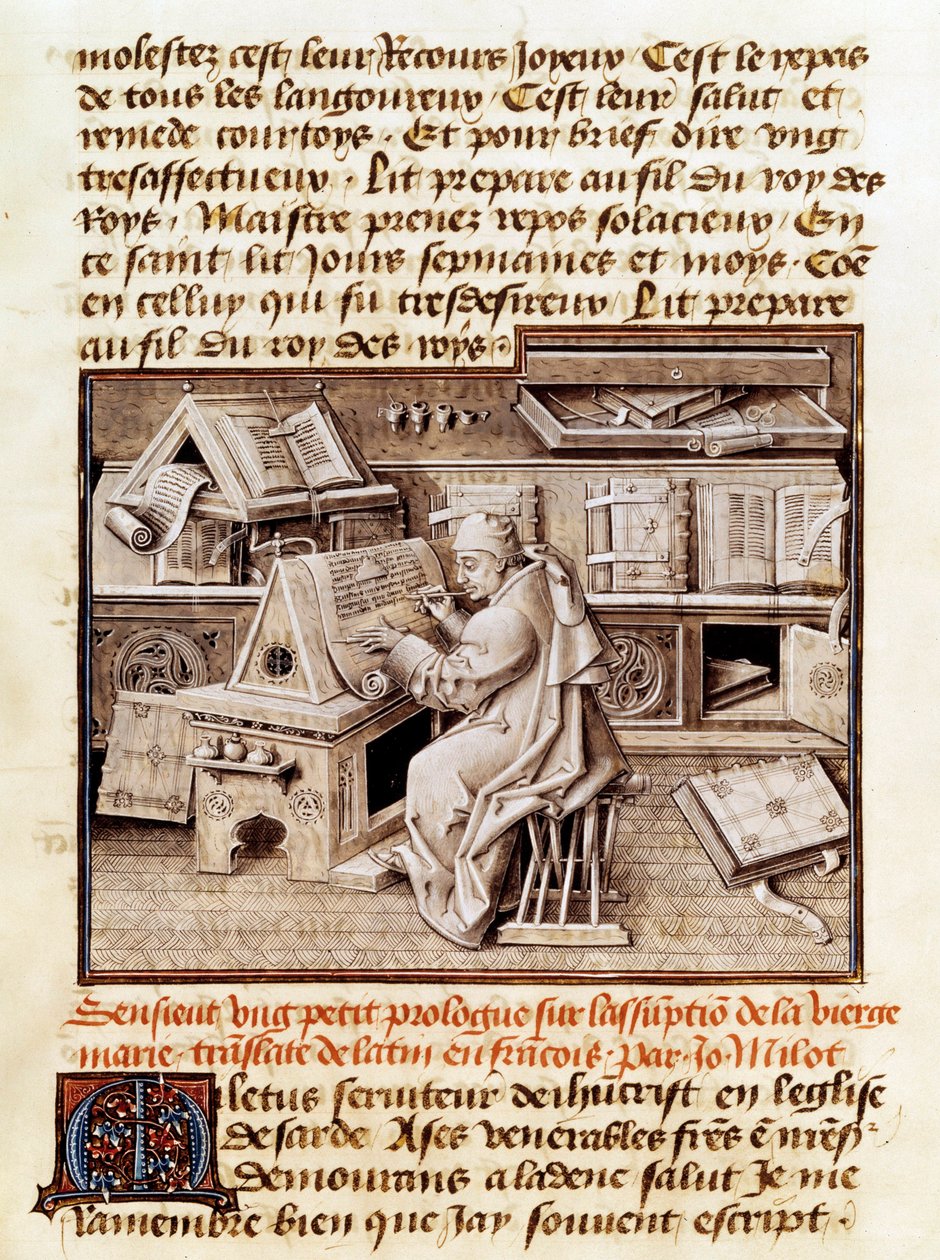 molestez cest leur Recours Joyeux / Cest le repas
de tous les langoureux / Cest leur salut et
remede courtoys . Et pour brief dire vng
tresaffectueux . Lit prepare au fil du roy des
Roys . Maistre prenez repos solacieux / En
ce saint lit Jours sepmaines et moys . Coē
en celluy qui fu tresdesireux / Lit prepare
au fil du roy des roys .
Sensieut vng petit prologue sur lassūptiō de la vierge
marie . trāslate de latin en frācois . par . Jo . Milot
Miletus seruiteur de ihūcrist en leglise
de sarde / A ses venerables frēs
demourans a ladence salut Je me
Ramembre bien que Jay souuent escript .